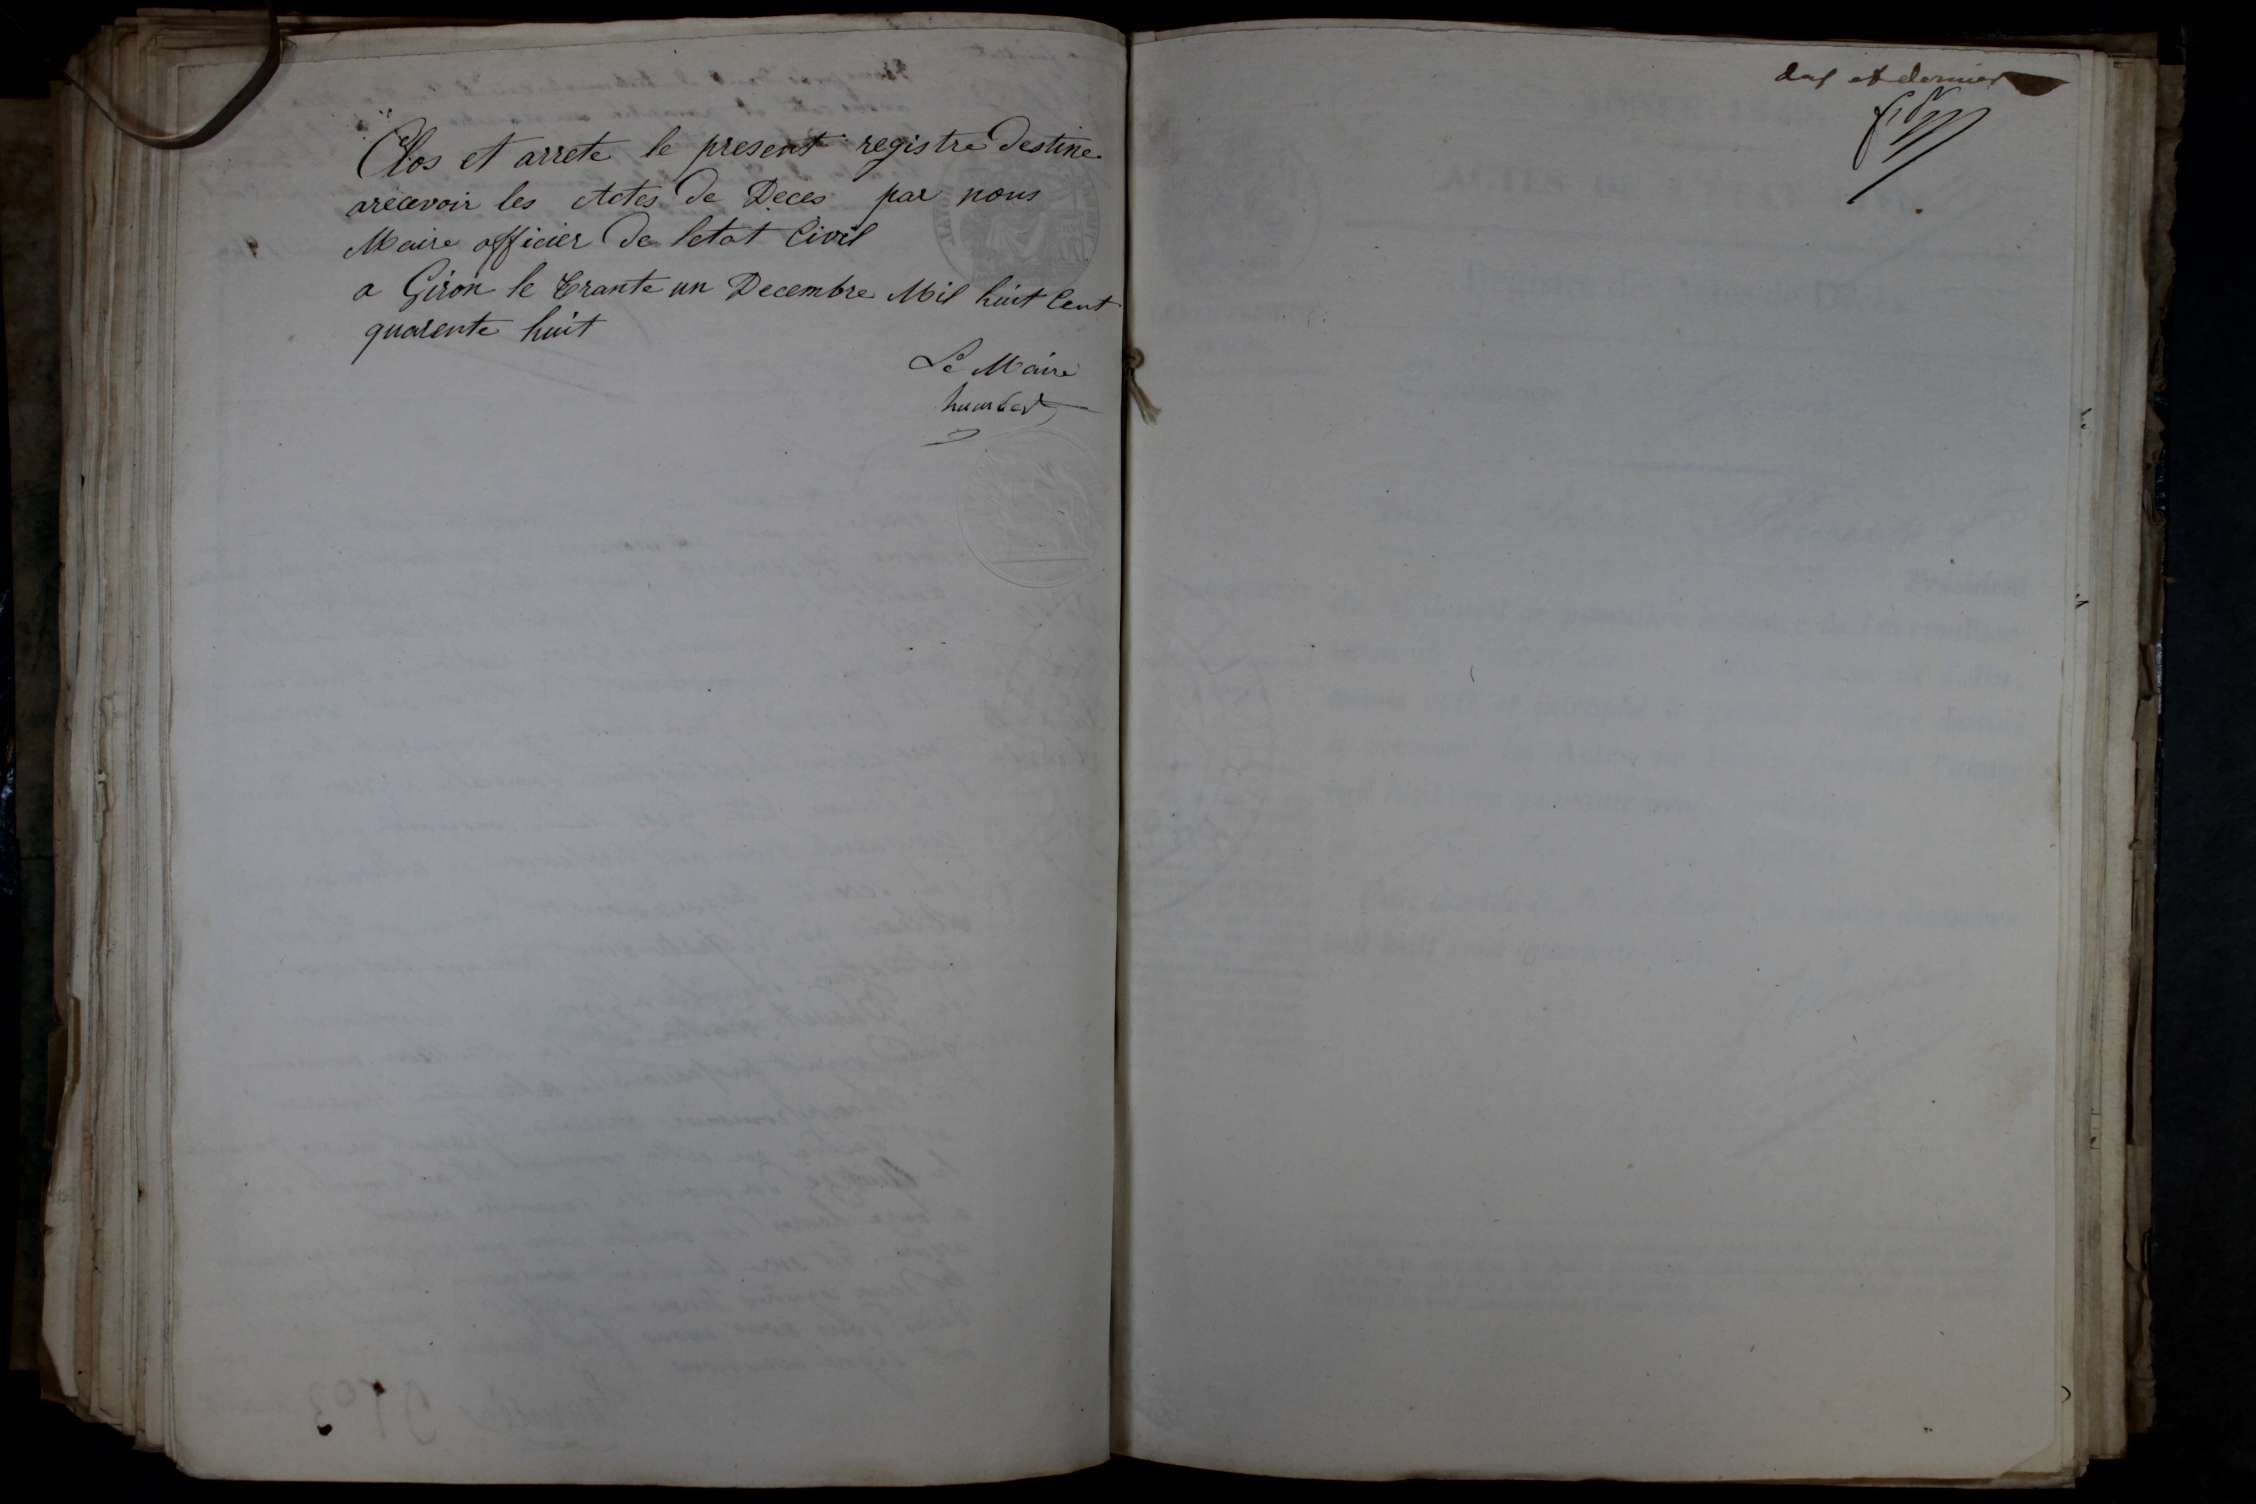 Clos et arrete le present registre destine
arecevoir les Actes de Deces par nous
Maire officier de letat Civil
a Giron le trante un Decembre Mil huit Cent
quarente huit
Le Maire
humbert
et dernier